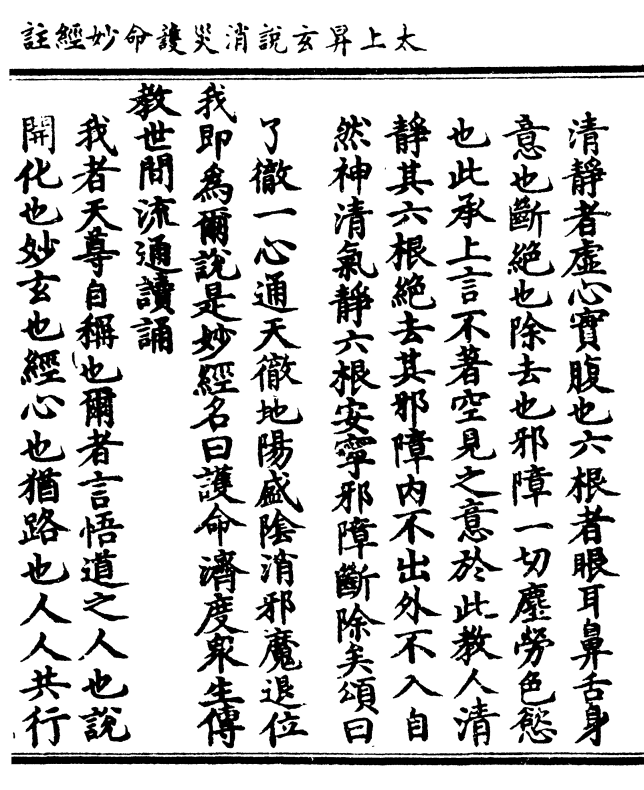 太上昇玄說消災護命妙經註
清靜者虛心實腹也六根者眼耳鼻舌身
意也斷絕也除去也邪障一切塵勞色慾
也此承上言不著空見之意於此教人清
靜其六根絕去其邪障內不出外不入自
然神清氣靜六根安寧邪障斷除矣頌曰
了徹一心通天徹地陽盛陰消邪魔退位
我即為爾說是妙經名曰護命濟度眾生傳
教世間流通讀誦
我者天尊自稱也爾者言悟道之人也說
開化也妙玄也經心也猶路也人人共行